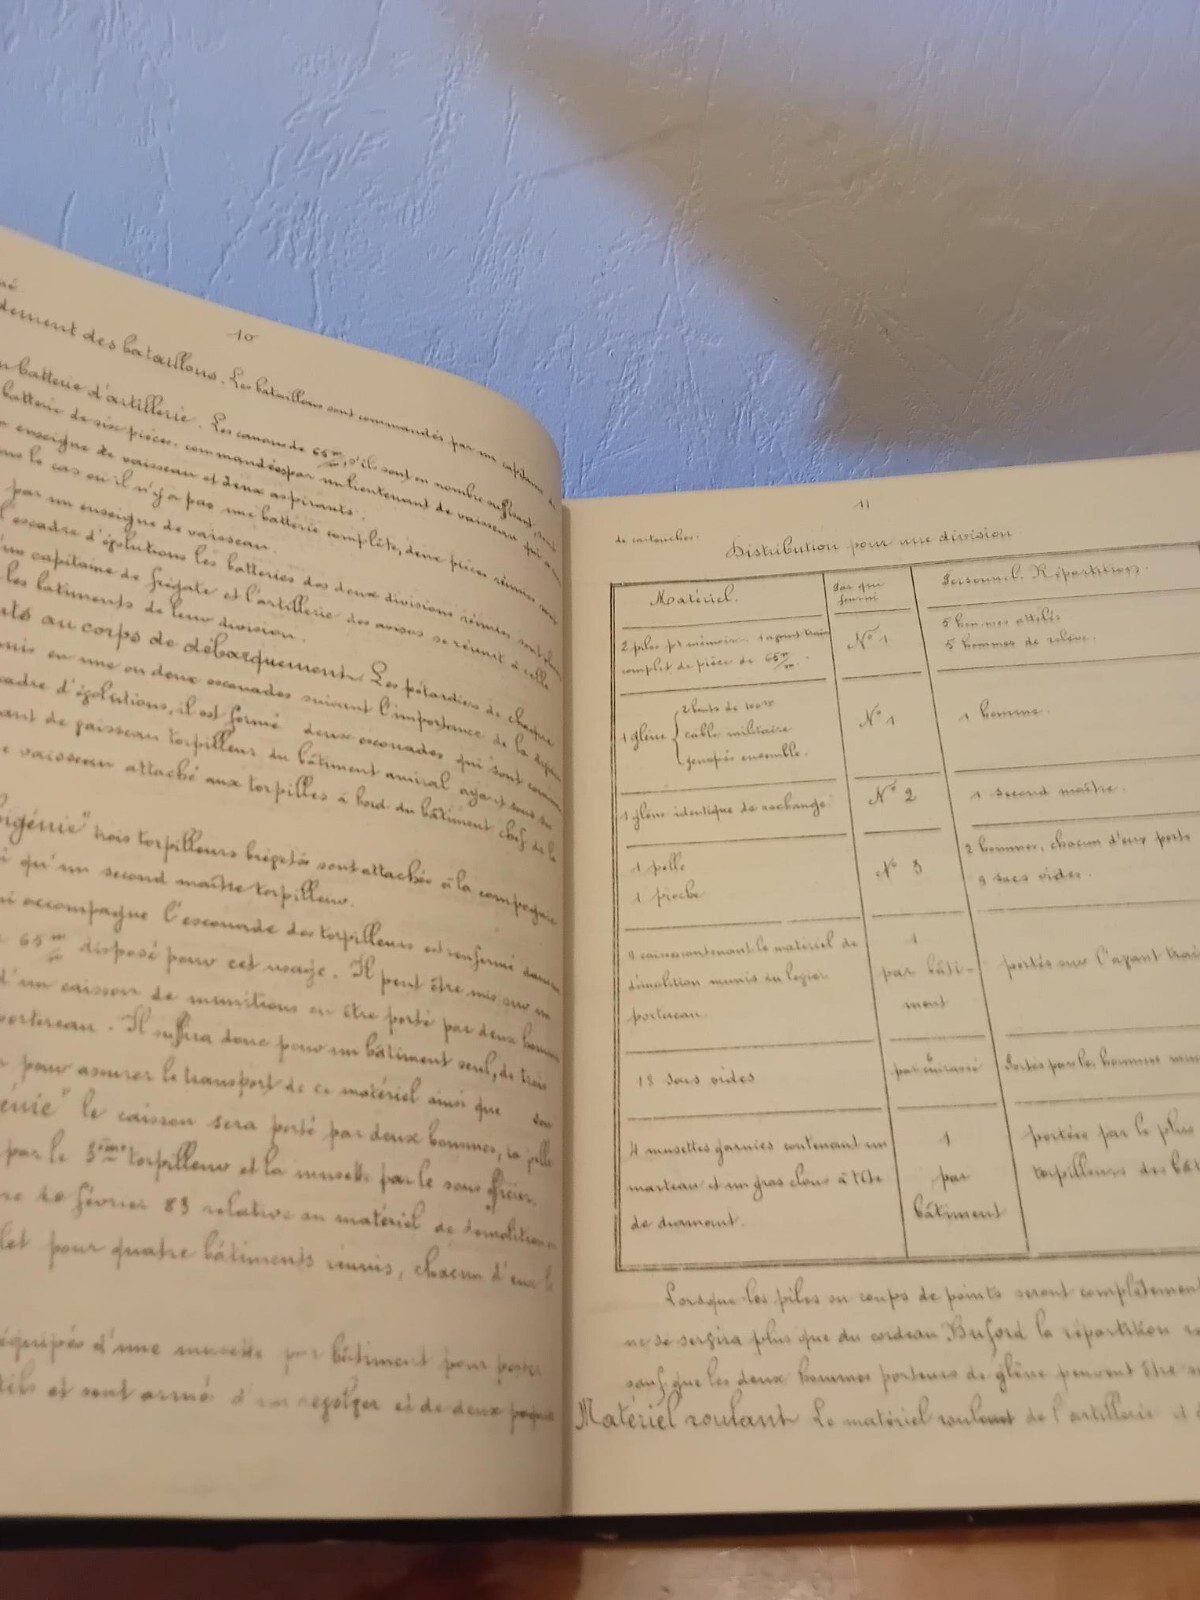 10
dement des bataillons. Les bataillons sont commandés par un capitaine de
batterie d'artillerie. Les canons de 65 m/m, s'ils sont en nombre suffisant, sont
batterie de six pièces, commandées par un lieutenant de vaisseau qui a
enseigne de vaisseau et deux aspirants.
le cas où il n'y a pas une batterie complète, deux pièces réunies sont
par un enseigne de vaisseau.
l'escadre d'évolutions les batteries des deux divisions réunies sont
un capitaine de frégate et l'artillerie des avisos se réunit à celle
les bâtiments de leur division.
au corps de débarquement. Les pétardiers de chaque
en une ou deux escouades suivant l'importance de la
d'évolutions, il est formé deux escouades qui sont
de vaisseau torpilleur du bâtiment amiral ayant sous
vaisseau attaché aux torpilles à bord du bâtiment chef de la
génie" trois torpilleurs brevetés sont attachés à la compagnie
qu'un second maître torpilleur.
accompagne l'escouade des torpilleurs est renfermé dans un
65 m/m disposé pour cet usage. Il peut être mis sur un
d'un caisson de munitions ou être porté par deux hommes
portereau. Il suffira donc pour un bâtiment seul, de trois
pour assurer le transport de ce matériel ainsi que son
génie" le caisson sera porté par deux hommes, la pelle
par le 3ème torpilleur et la musette par le sous officier.
20 février 83 relative au matériel de démolition
pour quatre bâtiments réunis, chacun d'eux
équipés d'une musette par bâtiment pour porter
et sont armés d'un revolver et de deux paquets
11
de cartouches.
Distribution pour une division
Matériel.
Par que fourni
Personnel. Répartitions.
2 piles pr mémoire 1 avant train
complet de pièce de 65 m/m.
N° 1
5 hommes attelés
5 hommes de relève.
1 glène
2 bouts de 100 m
cable militaire
genopés ensemble.
N° 1
1 homme.
1 glène identique de rechange
N° 2
1 second maître.
1 pelle
1 pioche
N° 3
2 hommes, chacun d'eux porte
9 sacs vides.
4 caisses contenant le matériel de
démolition munis du légier
portereau.
1
par bâti-
ment
portés sur l'avant train
18 sacs vides
par cuirassé
Portés par les hommes
4 musettes garnies contenant un
marteau et un gros clous à tête
de diamant.
1
par
bâtiment
portée par le plus
torpilleurs des
Lorsque les piles ou coups de points seront complètement
ne se servira plus que du cordeau Bickford la répartition
sauf que les deux hommes porteurs de glène peuvent être
Matériel roulant. Le matériel roulant de l'artillerie et